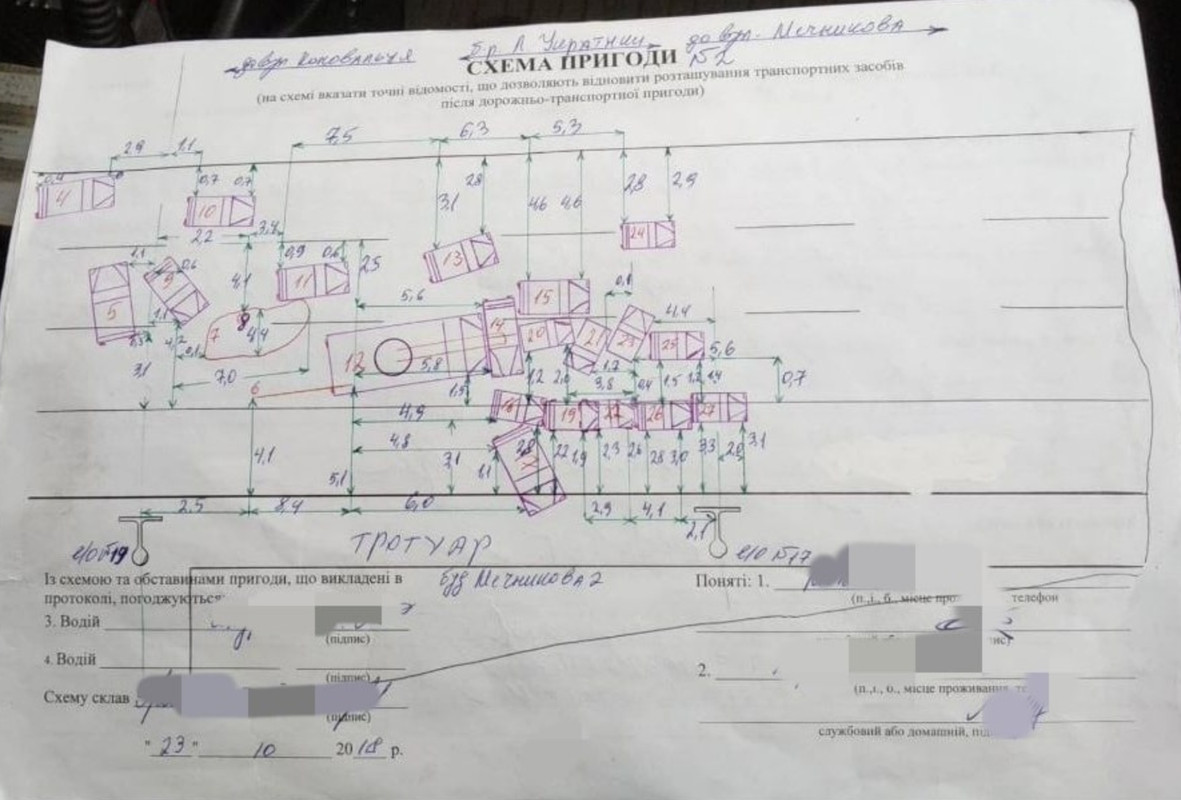 до вул. Коновальця бр Л Українки до вул. Мечникова
СХЕМА ПРИГОДИ №2
(на схемі вказати точні відомості, що дозволяють відновити розташування транспортних засобів
після дорожньо-транспортної пригоди)
7,5 6,3 5,3
2,9 1,1
0,7 0,7 3,1 2,8 4,6 4,6 2,8 2,9
4 10
2,2 3,4 24
1,1 0,6 4,1 0,9 0,6 2,5 13
5 9 11 5,6 15 0,1
1,1 8 14 4,4
7 4,4 20 21 23 25 5,6
3,1 4,2 0,1 12 5,8
7,0 1,5 1,2 2,0 1,7 3,8 0,4 1,5 1,2 0,7
6 4,9 18 19 22 26 27
4,8
4,1 5,1 3,1 1,1 17 2,2 1,9 2,3 2,6 2,8 3,0 3,3 2,0 3,1
2,5 8,4 6,0 2,9 4,1 2,1
е/о №19 ТРОТУАР е/о №17
буд Мечникова 2
Із схемою та обставинами пригоди, що викладені в
протоколі, погоджуються:
Поняті: 1.
(п.,і., б., місце про телефон
3. Водій
(підпис)
ис)
4. Водій
(підпис)
2.
(п.,і., б., місце проживання, те
Схему склав
(підпис)
службовий або домашній, під
" 23 " 10 2018 р.